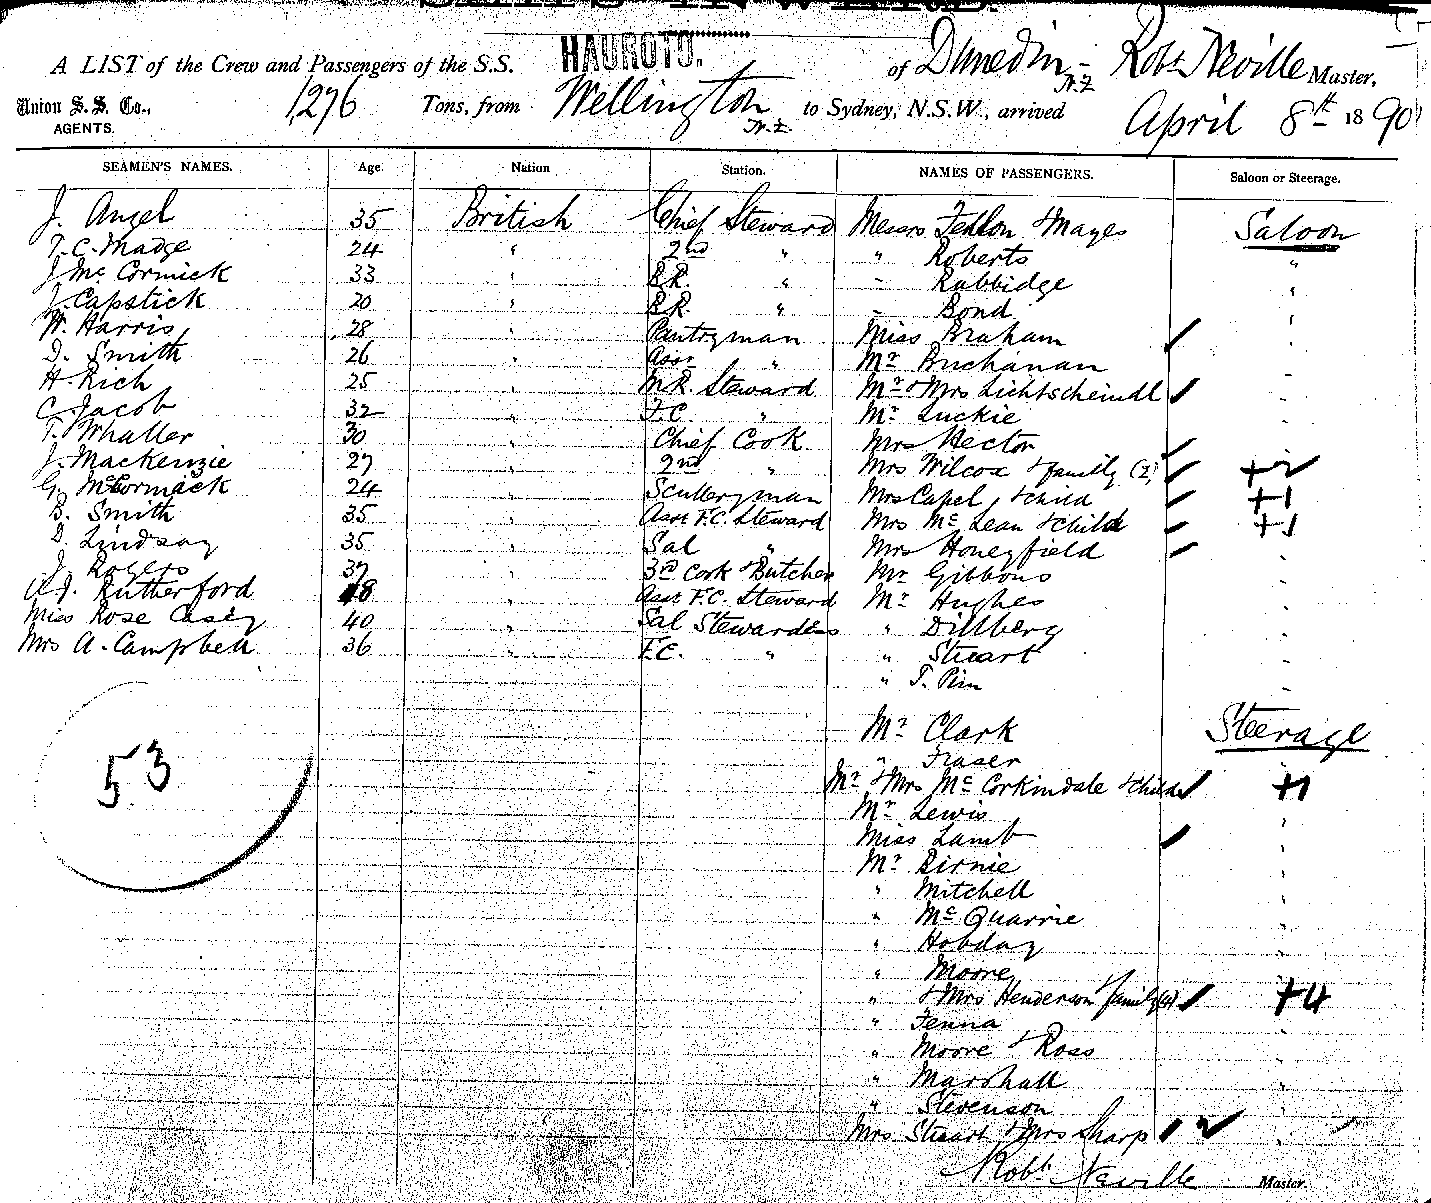 A LIST of the Crew and Passengers of the S.S. HAUROTO. of Dunedin N.Z. Robt Neville Master,
Union S. S. Co., AGENTS. 1,276 Tons, from Wellington N.Z. to Sydney, N.S.W., arrived April 8th 1890
SEAMEN'S NAMES. Age. Nation Station. NAMES OF PASSENGERS. Saloon or Steerage.
J. Angel 35 British Chief Steward Messrs Fenton & Mayes Saloon
T. C. Madge 24 " 2nd " " Roberts "
J. McCormick 33 " B.R. " " Rabbidge "
J. Capstick 20 " B.R. " " Bond "
W. Harris 28 " Pantryman Miss Braham "
D. Smith 26 " Asst " Mr Buchanan "
H Rich 25 " M.R. Steward Mr & Mrs Lichtscheindl "
C. Jacob 32 " F.C. " Mr Luckie "
T. Whaller 30 " Chief Cook Mrs Hector "
J. Mackenzie 27 " 2nd " Mrs Wilcox & family (2) +2
G. McCormack 24 " Sculleryman Mrs Capel & child +1
B. Smith 35 " Asst F.C. Steward Mrs McLean & child +1
D. Lindsay 35 " Sal " Mrs Honeyfield "
J. Rogers 37 " 3rd Cook & Butcher Mr Gibbons "
A. J. Rutherford 18 " Asst F.C. Steward Mr Hughes "
Miss Rose Casey 40 " Sal Stewardess " Dillberg "
Mrs A. Campbell 36 " F.C. " " Stuart "
" T. Pim "
Mr Clark Steerage
" Fraser
53 Mr & Mrs McCorkindale & child +1
Mr Lewis "
Miss Lamb "
Mr Birnie "
" Mitchell "
" McQuarrie "
" Hobday "
" Moore "
" & Mrs Henderson family (4) +4
" Fenna "
" Moore & Ross "
" Marshall "
" Stevenson "
Mrs Stuart & Mrs Sharp 2 "
Robt Neville Master.